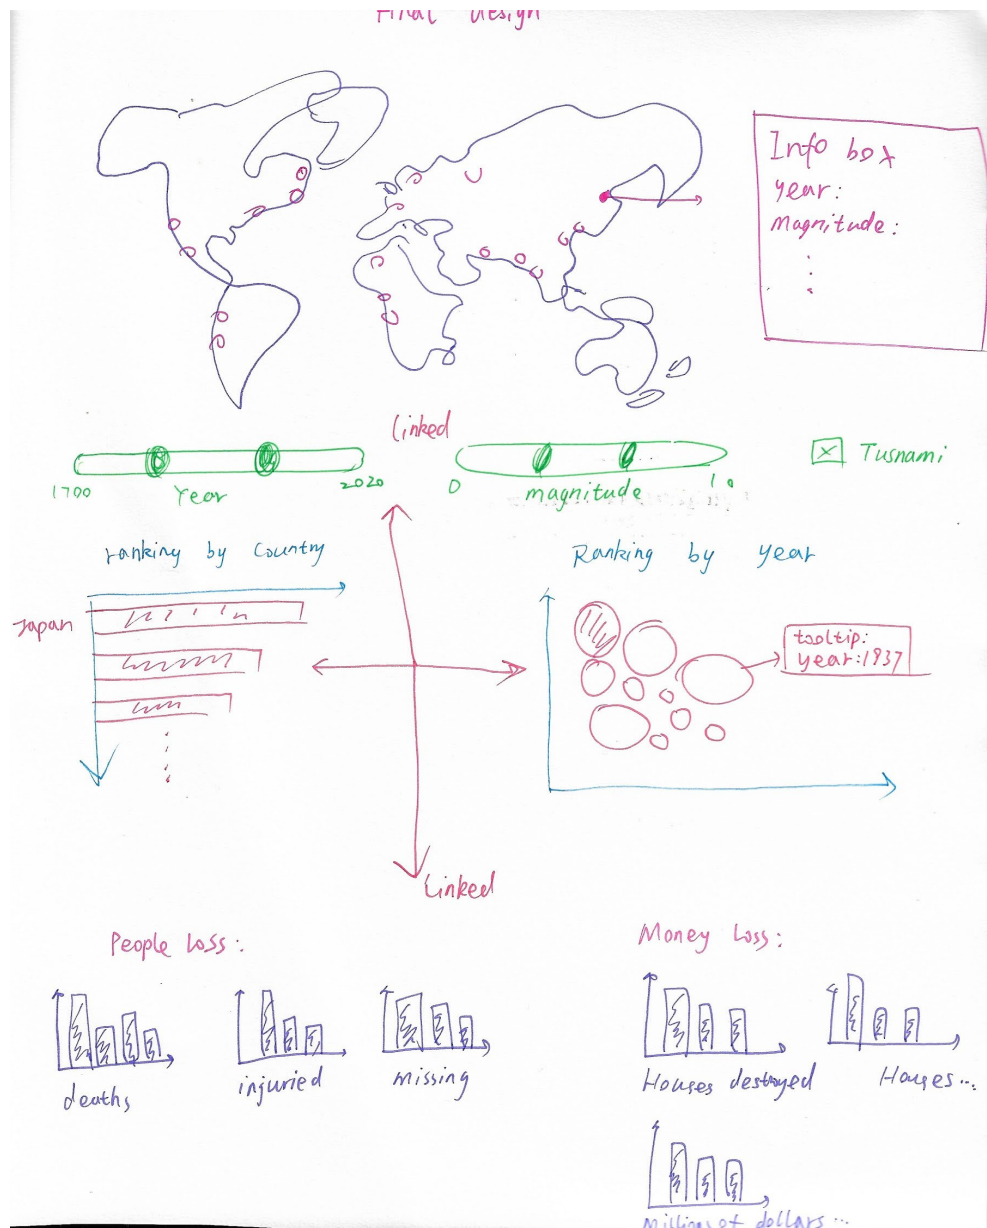 Final design
Info box
year:
Magnitude:
Linked
1700
Year
2020
0
magnitude
10
Tusnami
ranking by Country
Ranking by year
Japan
tooltip:
year:1937
Linked
People Loss:
Money Loss:
deaths
injuried
missing
Houses destroyed
Houses...
Millions of dollars ...